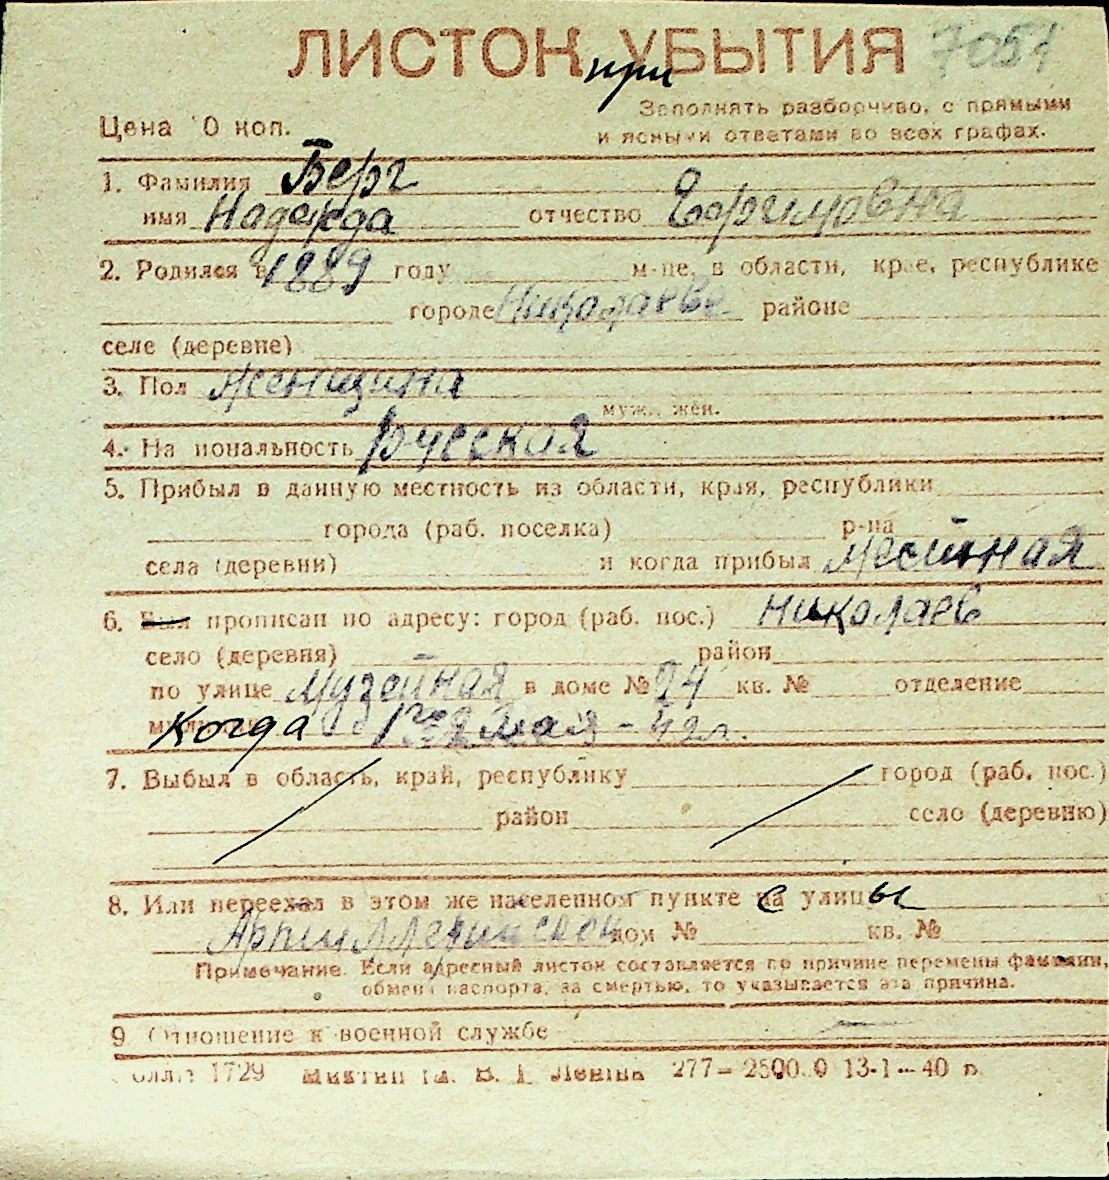 ЛИСТОК при УБЫТИЯ 7051
Заполнять разборчиво, с прямыми
Цена 0 коп. и ясными ответами во всех графах.
1. Фамилия Берг
имя Надежда отчество
2. Родился в 1889 году м-це, в области, крае, республике
городе Николаеве районе
селе (деревне)
3. Пол женщина
муж. жен.
4. На иональность Русская
5. Прибыл в данную местность из области, края, республики
города (раб. поселка) р-на
села (деревни) и когда прибыл местная
6. Был прописан по адресу: город (раб. пос.) Николаев
село (деревня) район
по улице Музейная в доме № 24 кв. № отделение
Когда 1го мая - 42г.
7. Выбыл в область, край, республику город (раб. пос.)
район село (деревню)
8. Или переехал в этом же населенном пункте с улицы
Артиллерийской дом № кв. №
Примечание. Если адресный листок составляется по причине перемены фамилии,
обмена паспорта, за смертью, то указывается эта причина.
9 Отношение к военной службе —
1729 В. І. Леніна 277— 2500 0 13-1—40 р.